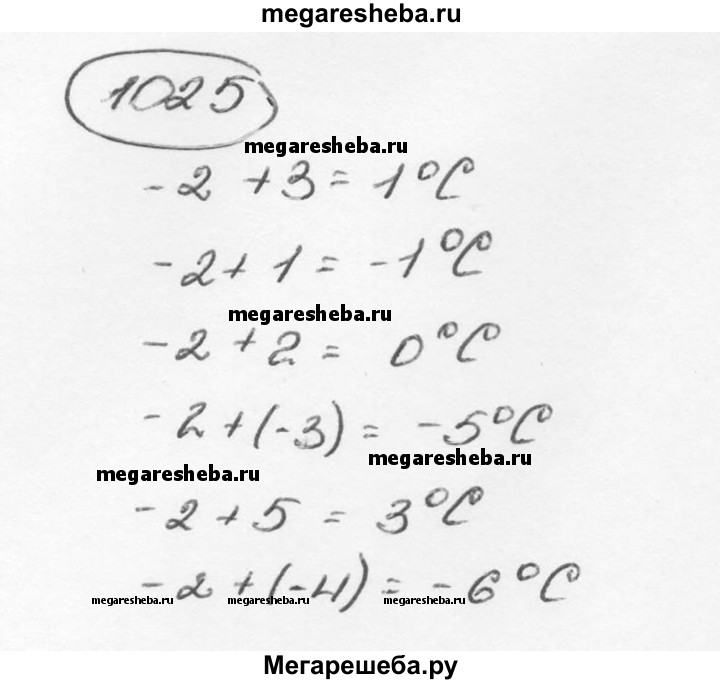 megaresheba.ru
1025
megaresheba.ru
-2 + 3 = 1°C
-2 + 1 = -1°C
megaresheba.ru
-2 + 2 = 0°C
-2 + (-3) = -5°C
megaresheba.ru
megaresheba.ru
-2 + 5 = 3°C
-2 + (-4) = -6°C
megaresheba.ru megaresheba.ru megaresheba.ru
Мегарешеба.ру